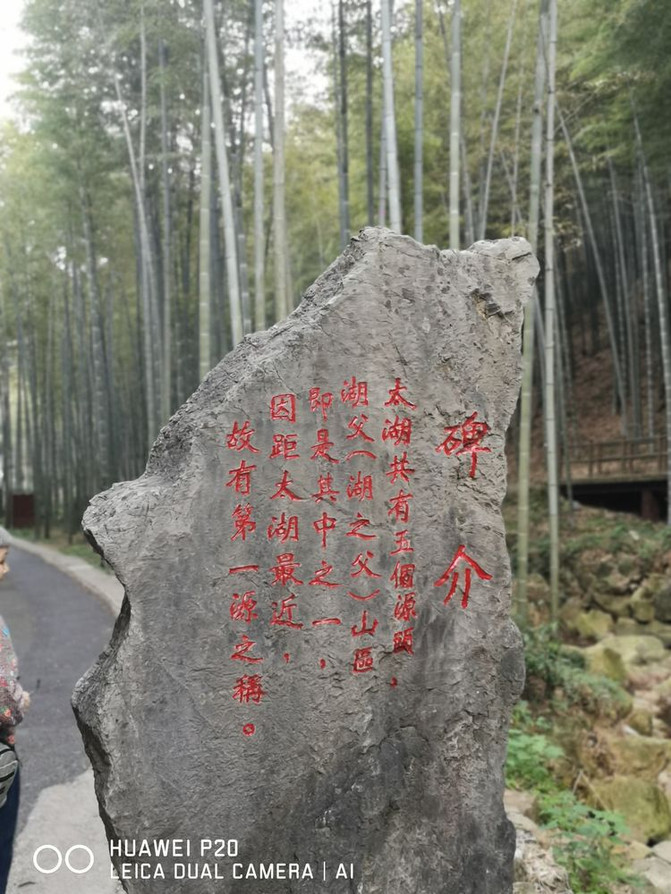 碑介
太湖共有五個源頭，
湖父（湖之父）山區
即是其中之一，
因距太湖最近，
故有第一源之稱。
HUAWEI P20
LEICA DUAL CAMERA | AI